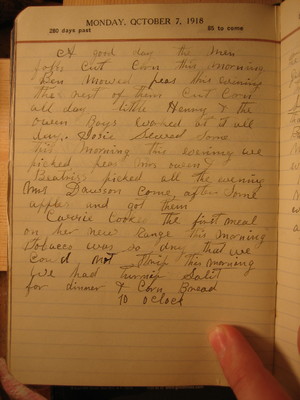 MONDAY, OCTOBER 7, 1918
280 days past 85 to come
A good day the men
folks Cut Corn this morning
Ben Mowed peas this evening
the rest of them Cut Corn
all day little Henry & the
Owen Boys worked at it all
day. Josie Sewed Some
this morning this evening we
picked peas Mrs Owen &
Beatrice picked all the evening
Mrs Dawson Come after Some
apples and got them
Carrie Cooked the first meal
on her new range this morning
tobacco was so dry that we
Could Not Strip this morning
We had turnip Salit
for dinner & Corn Bread
10 oclock